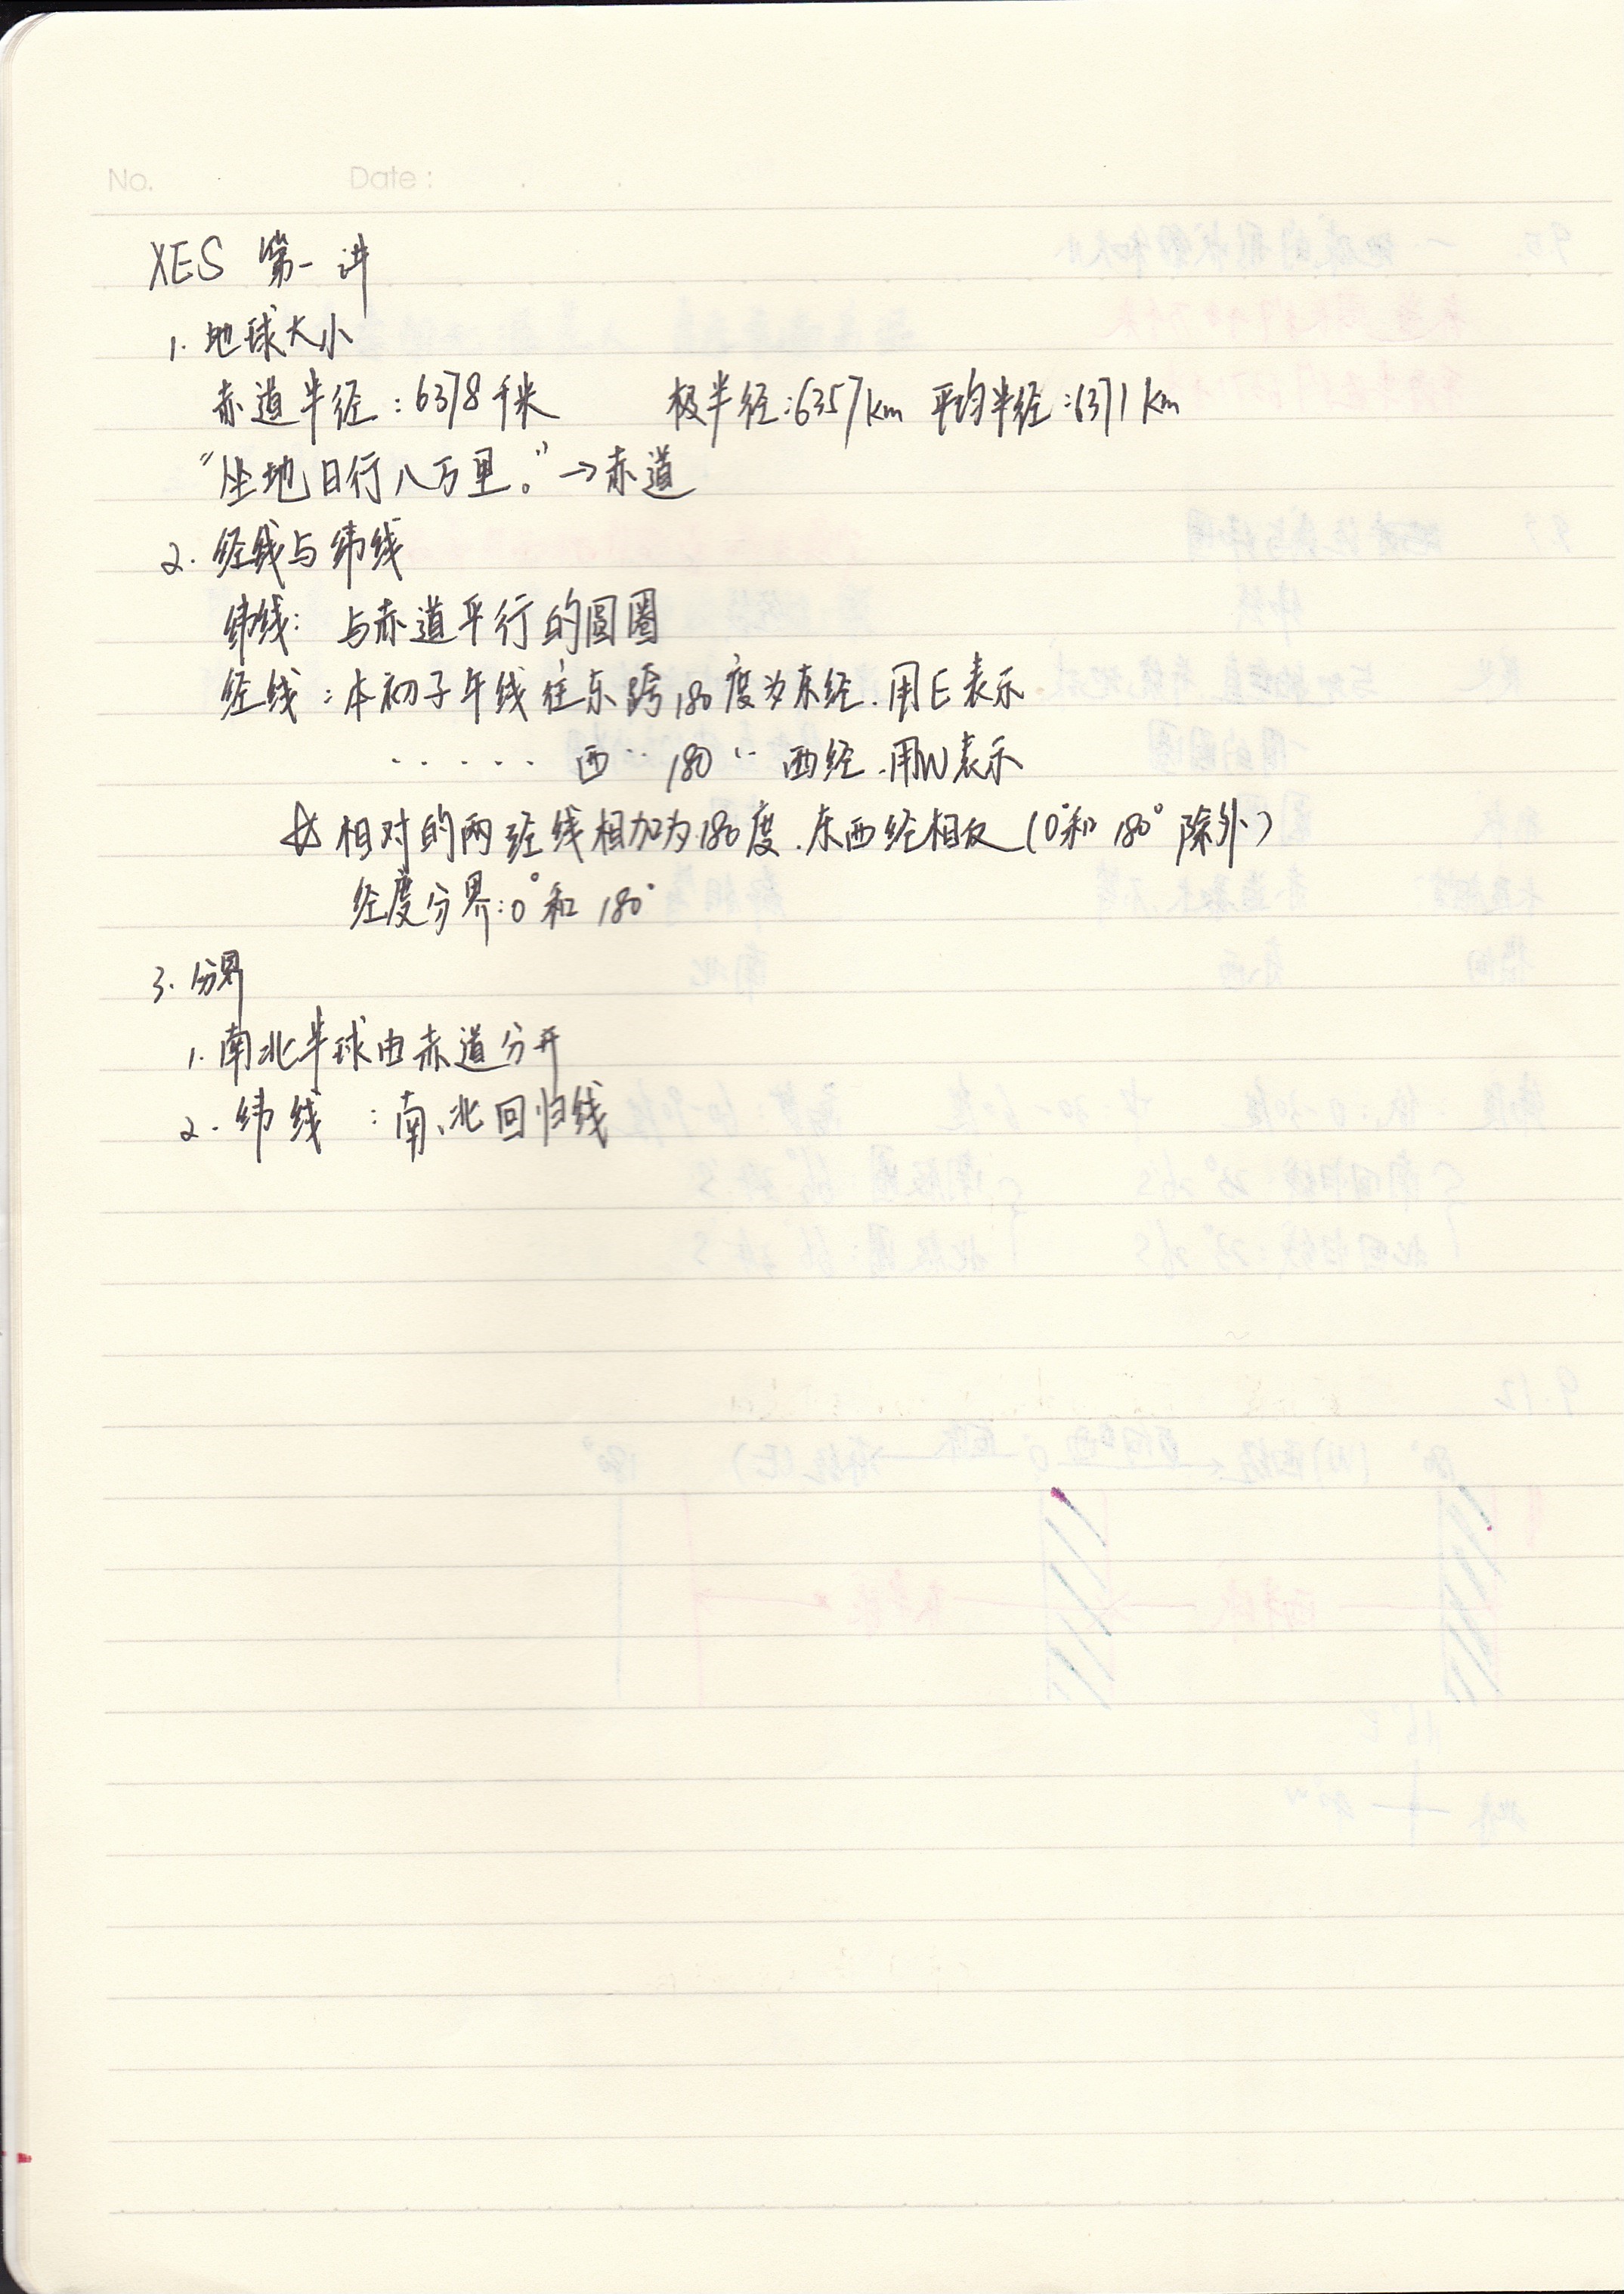 No. Date: . .
XES 第一讲
1. 地球大小
赤道半径:6378千米 极半径:6357km 平均半径:6371km
“坐地日行八万里。”→赤道
2. 经线与纬线
纬线: 与赤道平行的圆圈
经线:本初子午线往东跨180度为东经.用E表示
· · · · · 西 ·· 180 ·· 西经.用W表示
☆ 相对的两经线相加为180度.东西经相反(0°和180°除外)
经度分界:0°和180°
3. 分界
1. 南北半球由赤道分开
2. 纬线 :南、北回归线